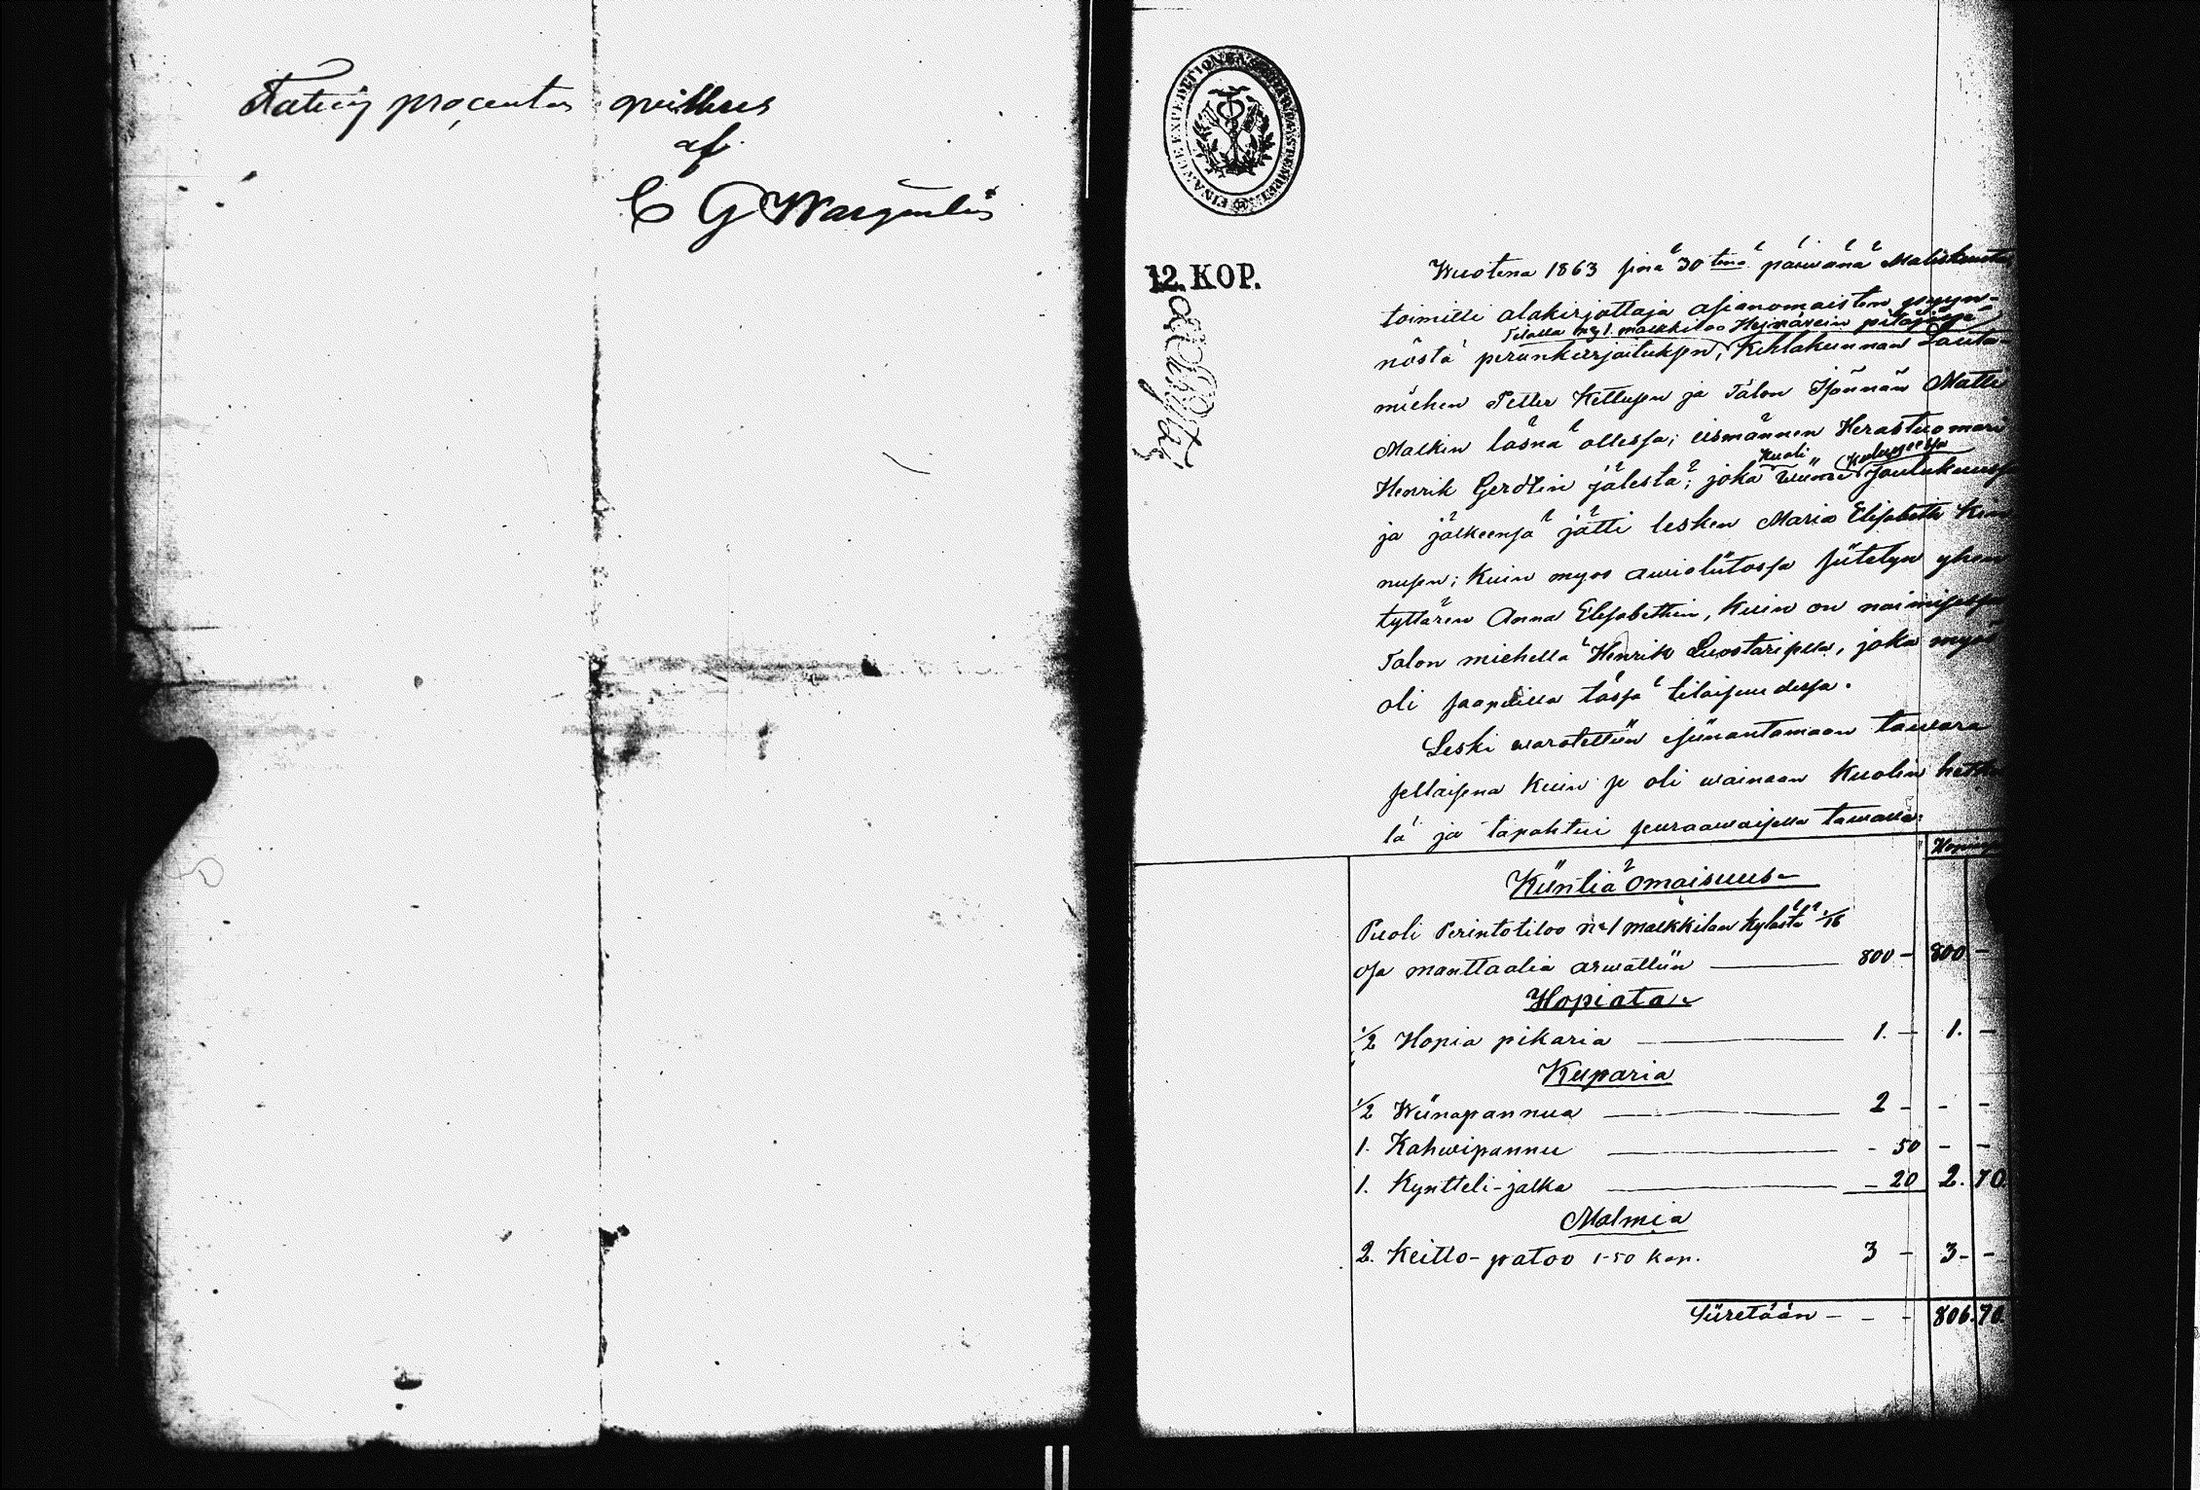 Fattig procenten qvitteras
af
C G Wargentin
FINANCE EXPEDITIONENS
12. KOP.
Wuotena 1863 sinä 30tenä päiwänä Maliskuuta
toimitti alakirjottaja asianomaisten pyyn-
Tilalla No 1 Malkkilaa Heinäwein pitäjässä
nöstä perunkirjoituksen, Kihlakunnan Lauta-
miehen Petter Kettusen ja Talon Isännän Matti
Malkin läsnä ollessa; eismännen Herastuomari
Kuoli Kuluneessa
Henrik Gerdtin jälestä; joka wiime Joulukuussa
ja jälkeensä jätti lesken Maria Elisabeth Kin
nusen; Kuin myös awioliitossa siitetyn yhen
tyttären Anna Elisabethin, Kuin on naimisessa
Talon miehellä Henrik Luostarisella, joka myös
oli saapuilla tässä tilaisuudessa.
Leski waroitettiin esiinantamaan tawara
sellaisena Kuin se oli wainaan Kuolin hetke
lä ja tapahtui seuraawaisella tawalla:
Kiintiä omaisuus
Puoli Perintotiloo No 1 Malkkilan Kylästä 1/16
osa manttaalia arwattiin 800 - 800 -
Hopiata
1/2 Hopia pikaria 1. - 1. -
Kuparia
1/2 Wiinapannua 2 - - -
1. Kahwipannu - 50 - -
1. Kyntteli-jalka - 20 2. 70
Malmia
2. Keitto-patoo 1-50 kop. 3 - 3 - -
Siiretään - - - 806. 70.